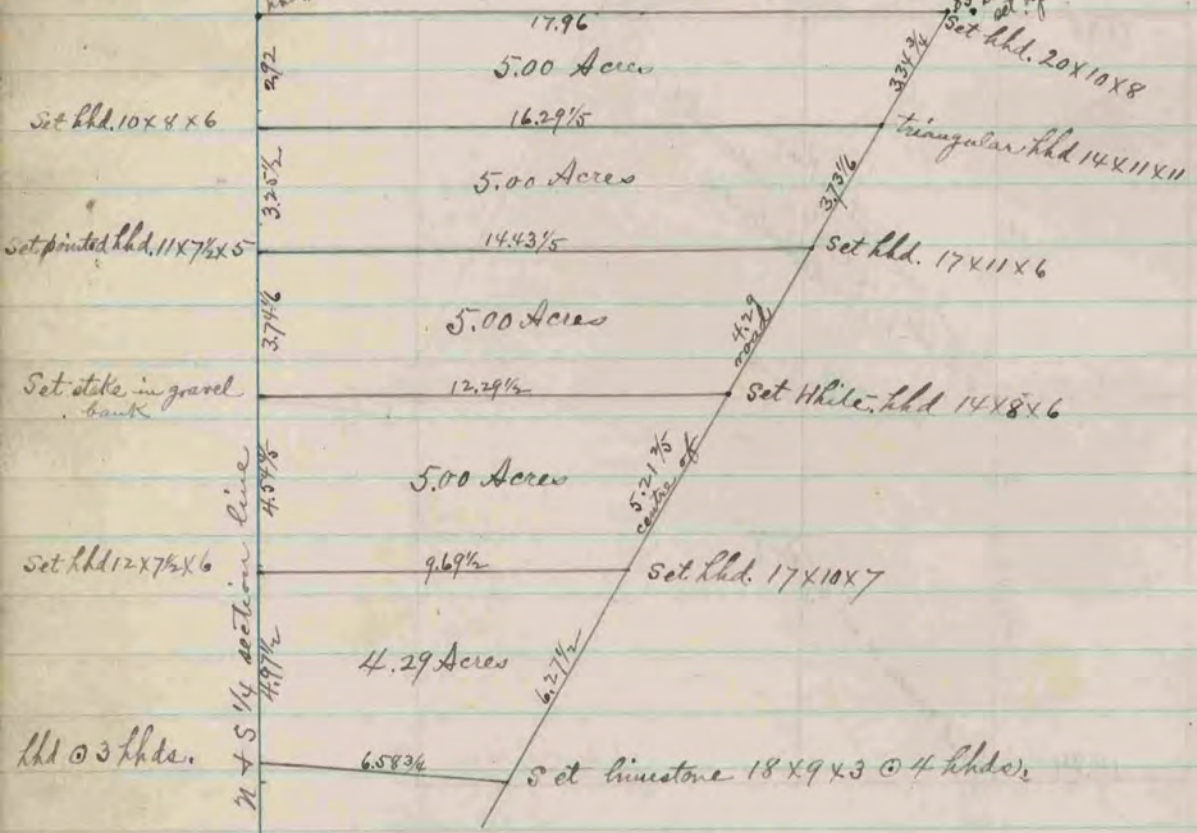 17.96
set
Set hhd. 20 x 10 x 8
2.92
5.00 Acres
3.34 3/4
Set hhd. 10 x 8 x 6
16.29 1/5
triangular hhd 14 x 11 x 11
3.25 1/2
5.00 Acres
3.73 1/6
Set pointed hhd. 11 x 7 1/2 x 5
14.43 1/5
Set hhd. 17 x 11 x 6
3.74 1/6
5.00 Acres
4.29
road
Set stake in gravel
bank
12.29 1/2
Set White hhd 14 x 8 x 6
4.54 4/5
5.00 Acres
5.21 3/5
centre of
Set hhd 12 x 7 1/2 x 6
9.69 1/2
Set hhd. 17 x 10 x 7
N & S 1/4 section line
4.97 1/2
4.29 Acres
6.27 1/2
hhd ⊙ 3 hhds.
6.58 3/4
Set limestone 18 x 9 x 3 ⊙ 4 hhds.